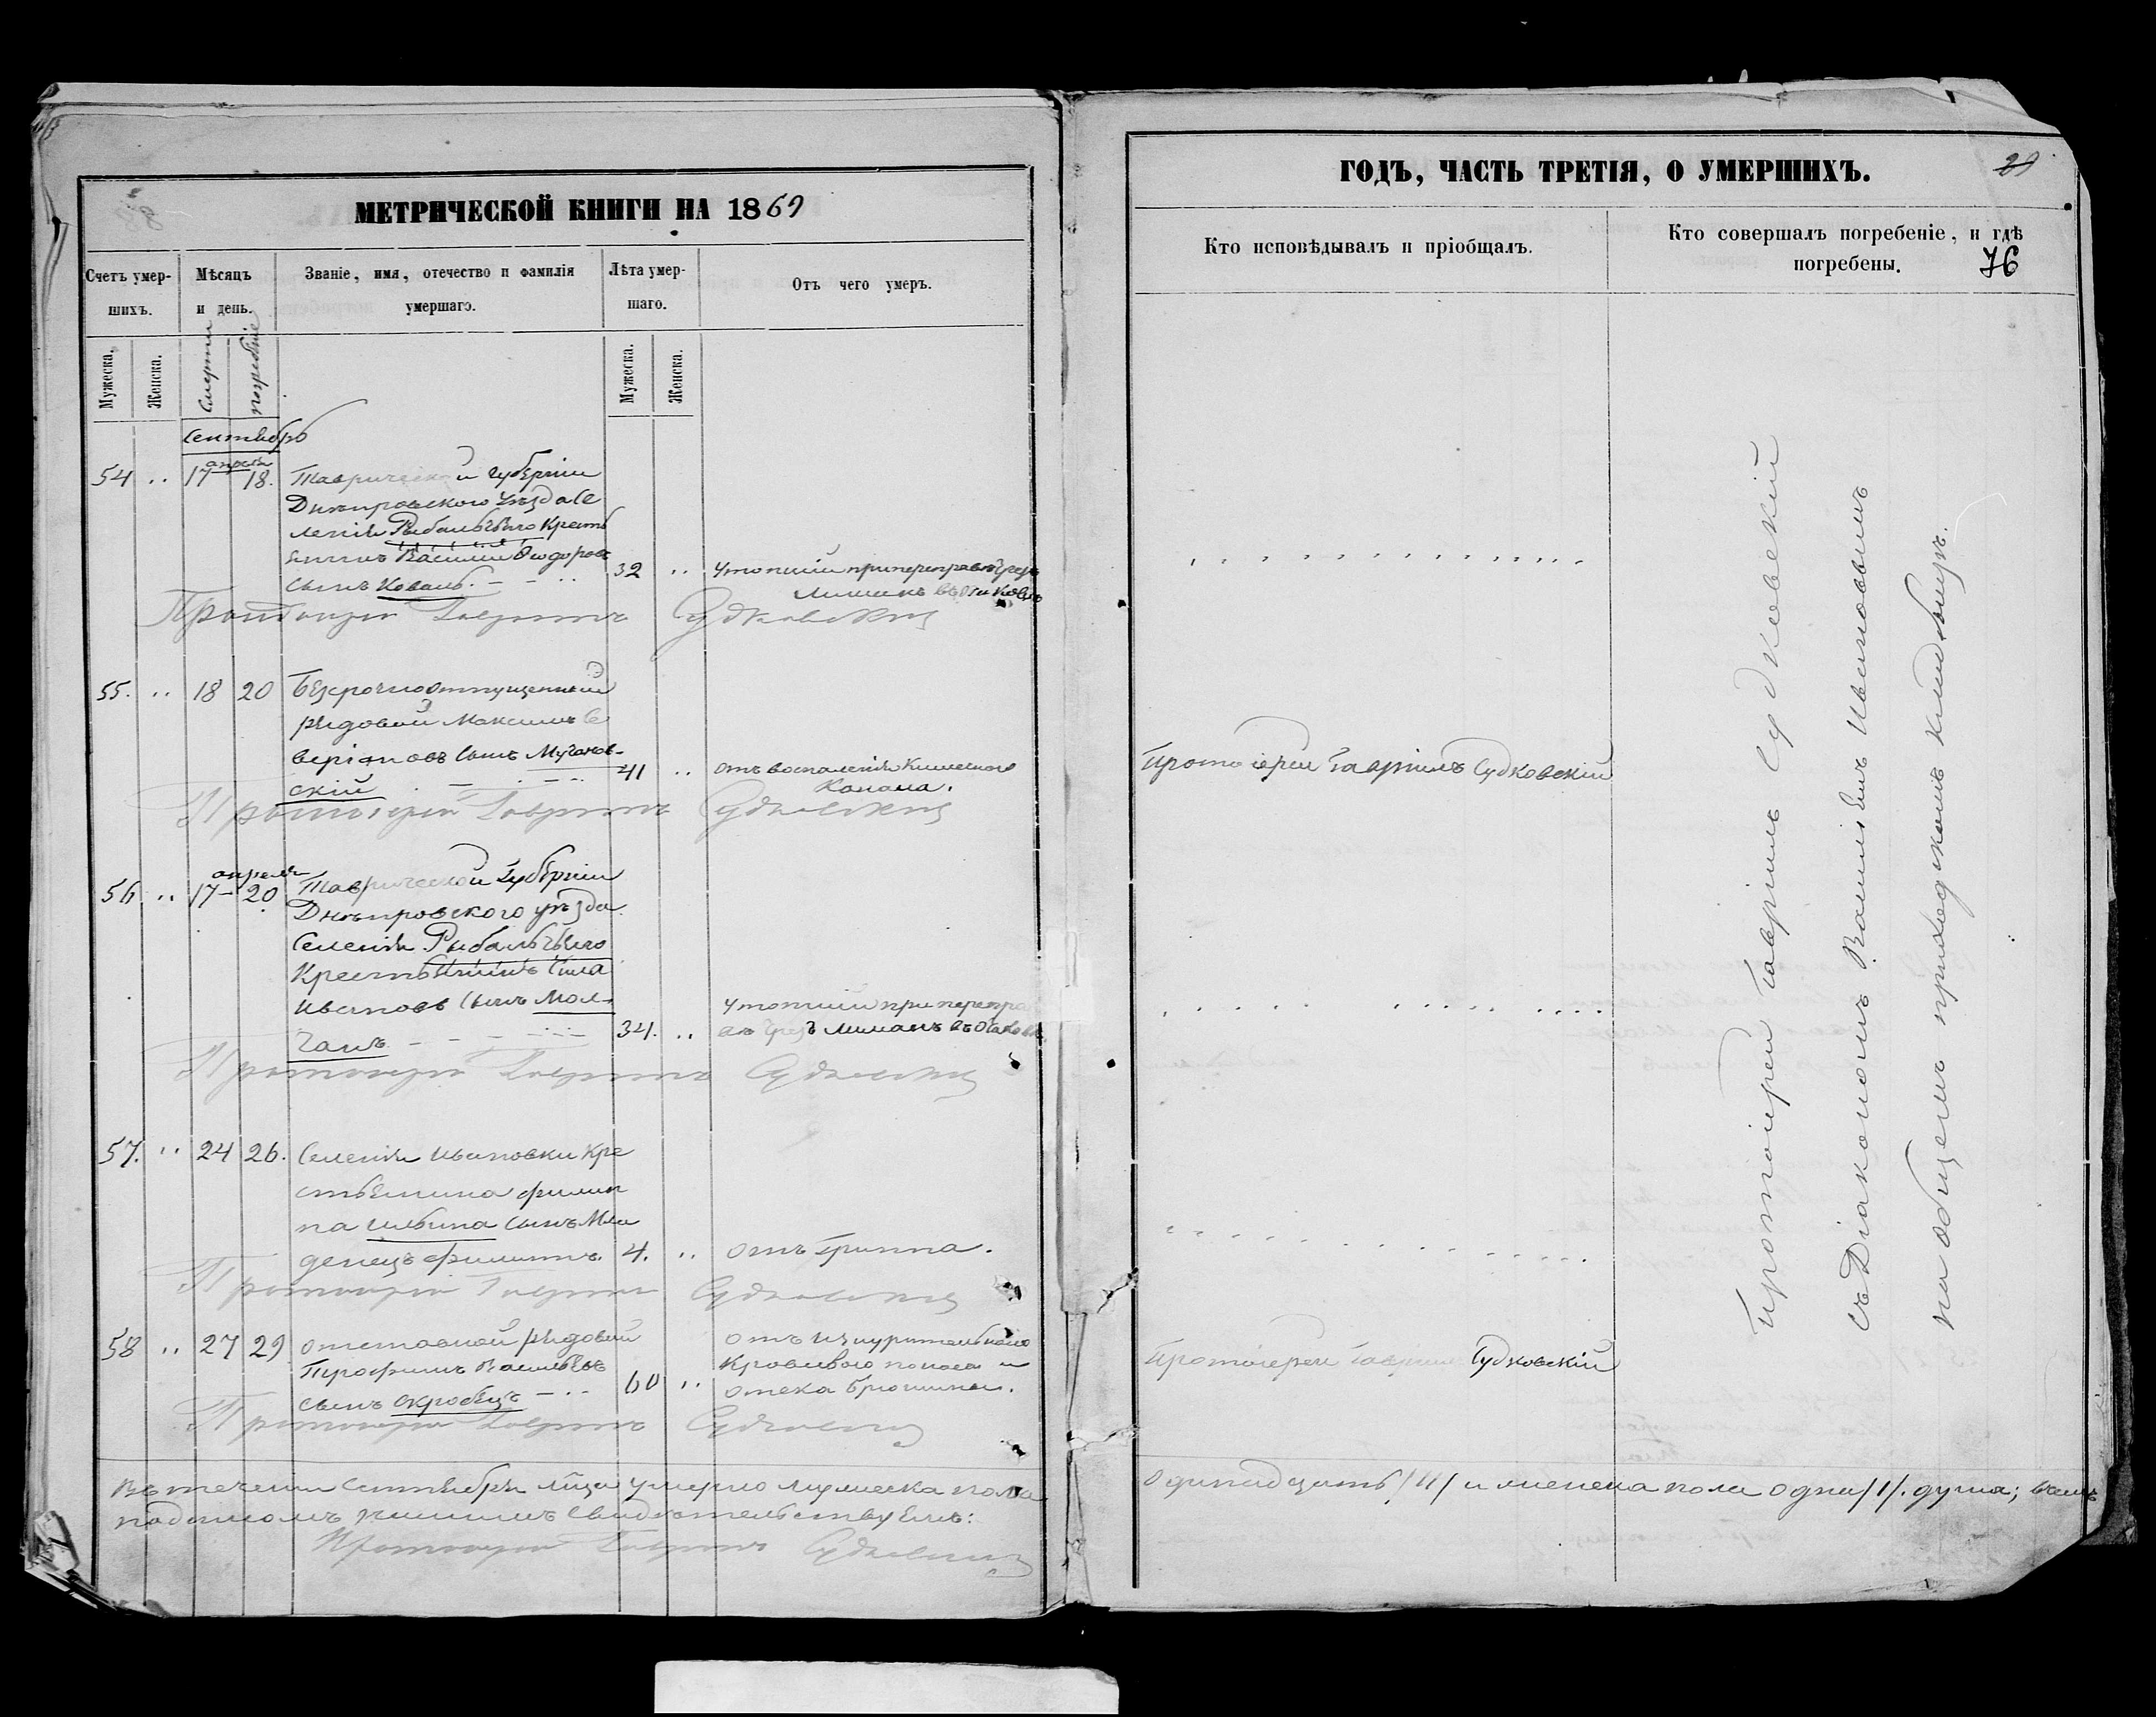 МЕТРИЧЕСКОЙ КНИГИ НА 1869
Счетъ умер-
шихъ.
Мѣсяцъ
и день.
Званіе, имя, отечество и фамилія
умершаго.
Лѣта умер-
шаго.
Отъ чего умеръ.
Мужеска.
Женска.
Смерти
погребенія
Мужеска.
Женска.
Сентябрь
апреля
54 .. 17 18. Таврической губерніи
Днѣпровскаго уѣзда Се
ленія Рыбальчьяго Кресть
янинъ Василій Ѳеодоровъ
сынъ Коваль. 32 ..
утопшій при переправѣ чрезъ
лиманъ въ Очаковъ
Протоіерей Гавріилъ Судковскій
55. .. 18 20 Безсрочноотпущенный
рядовой Максимъ Се
веріановъ сынъ
скій 41 ..
отъ воспаленія кишечнаго
Канала.
Протоіерей Гавріилъ Судковскій
апреля
56 .. 17 20 Таврической Губерніи
Днѣпровскаго уѣзда
Селенія Рыбальчьяго
Крестьянинъ Сила
Ивановъ сынъ Мол-
чанъ 34. ..
утопшій при перепра
вѣ чрезъ лиманъ въ Очаковъ
Протоіерей Гавріилъ Судковскій
57. .. 24 26. Селенія Ивановки Кре
стьянина Филип
па сынъ Мла
денецъ Филиппъ. 4. .. отъ Гриппа.
Протоіерей Гавріилъ Судковскій
58 .. 27 29 отставной рядовой
Васильевъ
сынъ Скробецъ 60 ..
отъ изнурительнаго
Кроваваго поноса и
отека брюшины.
Протоіерей Гавріилъ Судковскій
Въ теченіи Сентября мѣсяца умерло мужеска пола
подписомъ нашимъ свидѣтельствуемъ:
Протоіерей Гавріилъ Судковскій
ГОДЪ, ЧАСТЬ ТРЕТІЯ, О УМЕРШИХЪ.
Кто исповѣдывалъ и пріобщалъ.
Кто совершалъ погребеніе, и гдѣ
погребены.
76
Протоіерей Гавріилъ Судковскій
Протоіерей Гавріилъ Судковскій
Протоіерей Гавріилъ Судковскій
съ Діакономъ Василіемъ Ивановымъ
на общемъ приходскомъ кладбищѣ.
Одинадцать /11/ и женска пола одна /1/. душа; въ чемъ